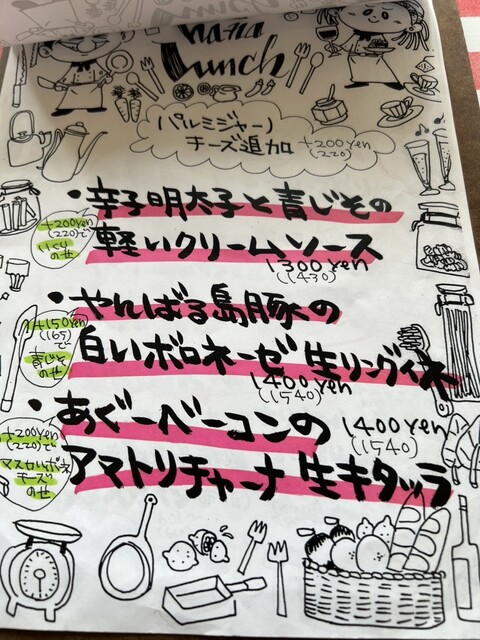 Lunch
(パルミジャーノ)
チーズ追加 +200yen
(220)
・辛子明太子と青じその
軽いクリームソース
1300yen
(1430)
+200yen
(220)で
いくら
のせ
・やんばる島豚の
白いボロネーゼ 生リングイネ
1400yen
(1540)
+150yen
(165)で
青じそ
のせ
・あぐーベーコンの
1400yen
(1540)
アマトリチャーナ 生キタッラ
+200yen
(220)で
マスカルポーネ
チーズ
のせ